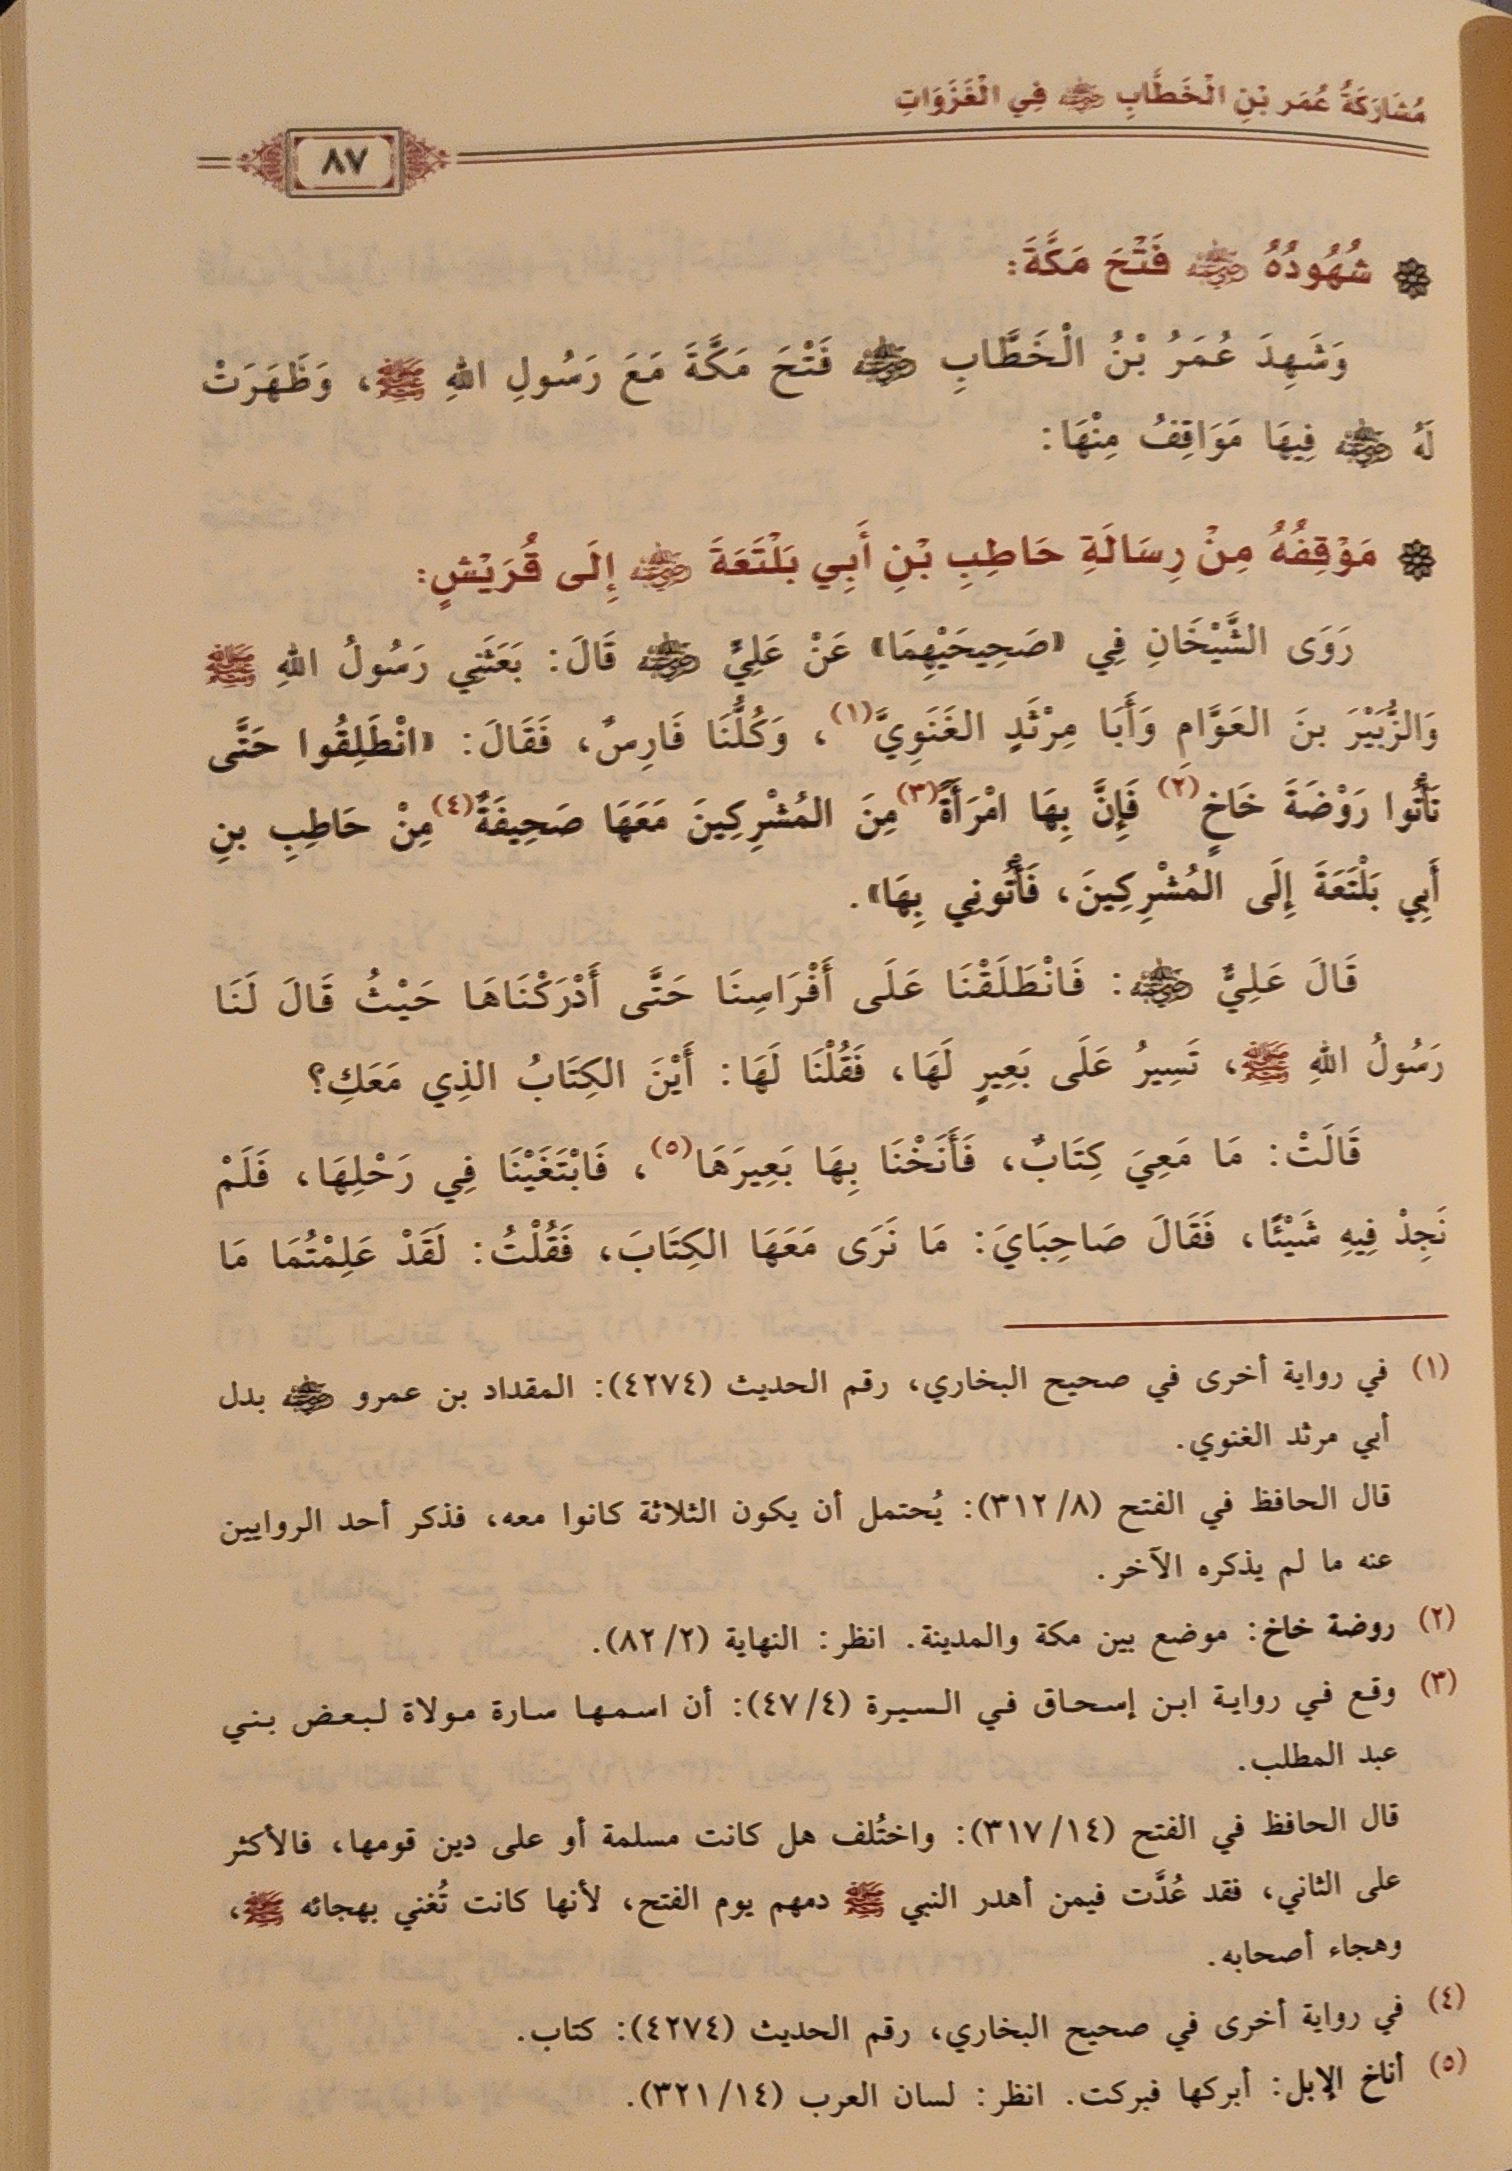 مُشَارَكَةُ عُمَر بْنِ الْخَطَّابِ ﵁ فِي الْغَزَوَاتِ
٨٧
شُهُودُهُ ﵁ فَتْحَ مَكَّةَ:
وَشَهِدَ عُمَرُ بْنُ الْخَطَّابِ ﵁ فَتْحَ مَكَّةَ مَعَ رَسُولِ اللهِ ﷺ، وَظَهَرَتْ
لَهُ ﵁ فِيهَا مَوَاقِفُ مِنْهَا:
مَوْقِفُهُ مِنْ رِسَالَةِ حَاطِبِ بْنِ أَبِي بَلْتَعَةَ ﵁ إِلَى قُرَيْشٍ:
رَوَى الشَّيْخَانِ فِي «صَحِيحَيْهِمَا» عَنْ عَلِيٍّ ﵁ قَالَ: بَعَثَنِي رَسُولُ اللهِ ﷺ
وَالزُّبَيْرَ بنَ العَوَّامِ وَأَبَا مِرْثَدٍ الغَنَوِيَّ(١)، وَكُلُّنَا فَارِسٌ، فَقَالَ: «انْطَلِقُوا حَتَّى
تَأْتُوا رَوْضَةَ خَاخٍ(٢) فَإِنَّ بِهَا امْرَأَةً(٣) مِنَ المُشْرِكِينَ مَعَهَا صَحِيفَةٌ(٤) مِنْ حَاطِبِ بنِ
أَبِي بَلْتَعَةَ إِلَى المُشْرِكِينَ، فَأْتُونِي بِهَا».
قَالَ عَلِيٌّ ﵁: فَانْطَلَقْنَا عَلَى أَفْرَاسِنَا حَتَّى أَدْرَكْنَاهَا حَيْثُ قَالَ لَنَا
رَسُولُ اللهِ ﷺ، تَسِيرُ عَلَى بَعِيرٍ لَهَا، فَقُلْنَا لَهَا: أَيْنَ الكِتَابُ الذِي مَعَكِ؟
قَالَتْ: مَا مَعِيَ كِتَابٌ، فَأَنَخْنَا بِهَا بَعِيرَهَا(٥)، فَابْتَغَيْنَا فِي رَحْلِهَا، فَلَمْ
نَجِدْ فِيهِ شَيْئًا، فَقَالَ صَاحِبَايَ: مَا نَرَى مَعَهَا الكِتَابَ، فَقُلْتُ: لَقَدْ عَلِمْتُمَا مَا
(١) في رواية أخرى في صحيح البخاري، رقم الحديث (٤٢٧٤): المقداد بن عمرو ﵁ بدل
أبي مرثد الغنوي.
قال الحافظ في الفتح (٣١٢/٨): يُحتمل أن يكون الثلاثة كانوا معه، فذكر أحد الروايين
عنه ما لم يذكره الآخر.
(٢) روضة خاخ: موضع بين مكة والمدينة. انظر: النهاية (٨٢/٢).
(٣) وقع في رواية ابن إسحاق في السيرة (٤٧/٤): أن اسمها سارة مولاة لبعض بني
عبد المطلب.
قال الحافظ في الفتح (٣١٧/١٤): واختُلف هل كانت مسلمة أو على دين قومها، فالأكثر
على الثاني، فقد عُدَّت فيمن أهدر النبي ﷺ دمهم يوم الفتح، لأنها كانت تُغني بهجائه ﷺ،
وهجاء أصحابه.
(٤) في رواية أخرى في صحيح البخاري، رقم الحديث (٤٢٧٤): كتاب.
(٥) أناخ الإبل: أبركها فبركت. انظر: لسان العرب (٣٢١/١٤).